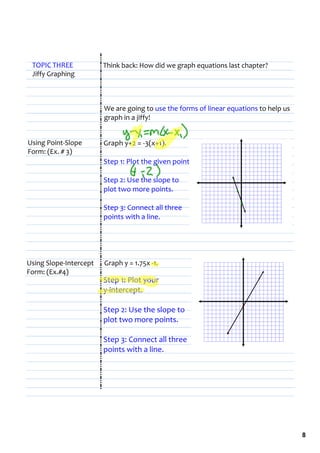 TOPIC THREE
Jiffy Graphing
Think back: How did we graph equations last chapter?
We are going to use the forms of linear equations to help us
graph in a jiffy!
y-y₁=m(x-x₁)
Using Point-Slope
Form: (Ex. # 3)
Graph y+2 = -3(x+1).
Step 1: Plot the given point
Step 2: Use the slope to
plot two more points.
Step 3: Connect all three
points with a line.
Using Slope-Intercept
Form: (Ex.#4)
Graph y = 1.75x -1.
Step 1: Plot your
y-intercept.
Step 2: Use the slope to
plot two more points.
Step 3: Connect all three
points with a line.
8